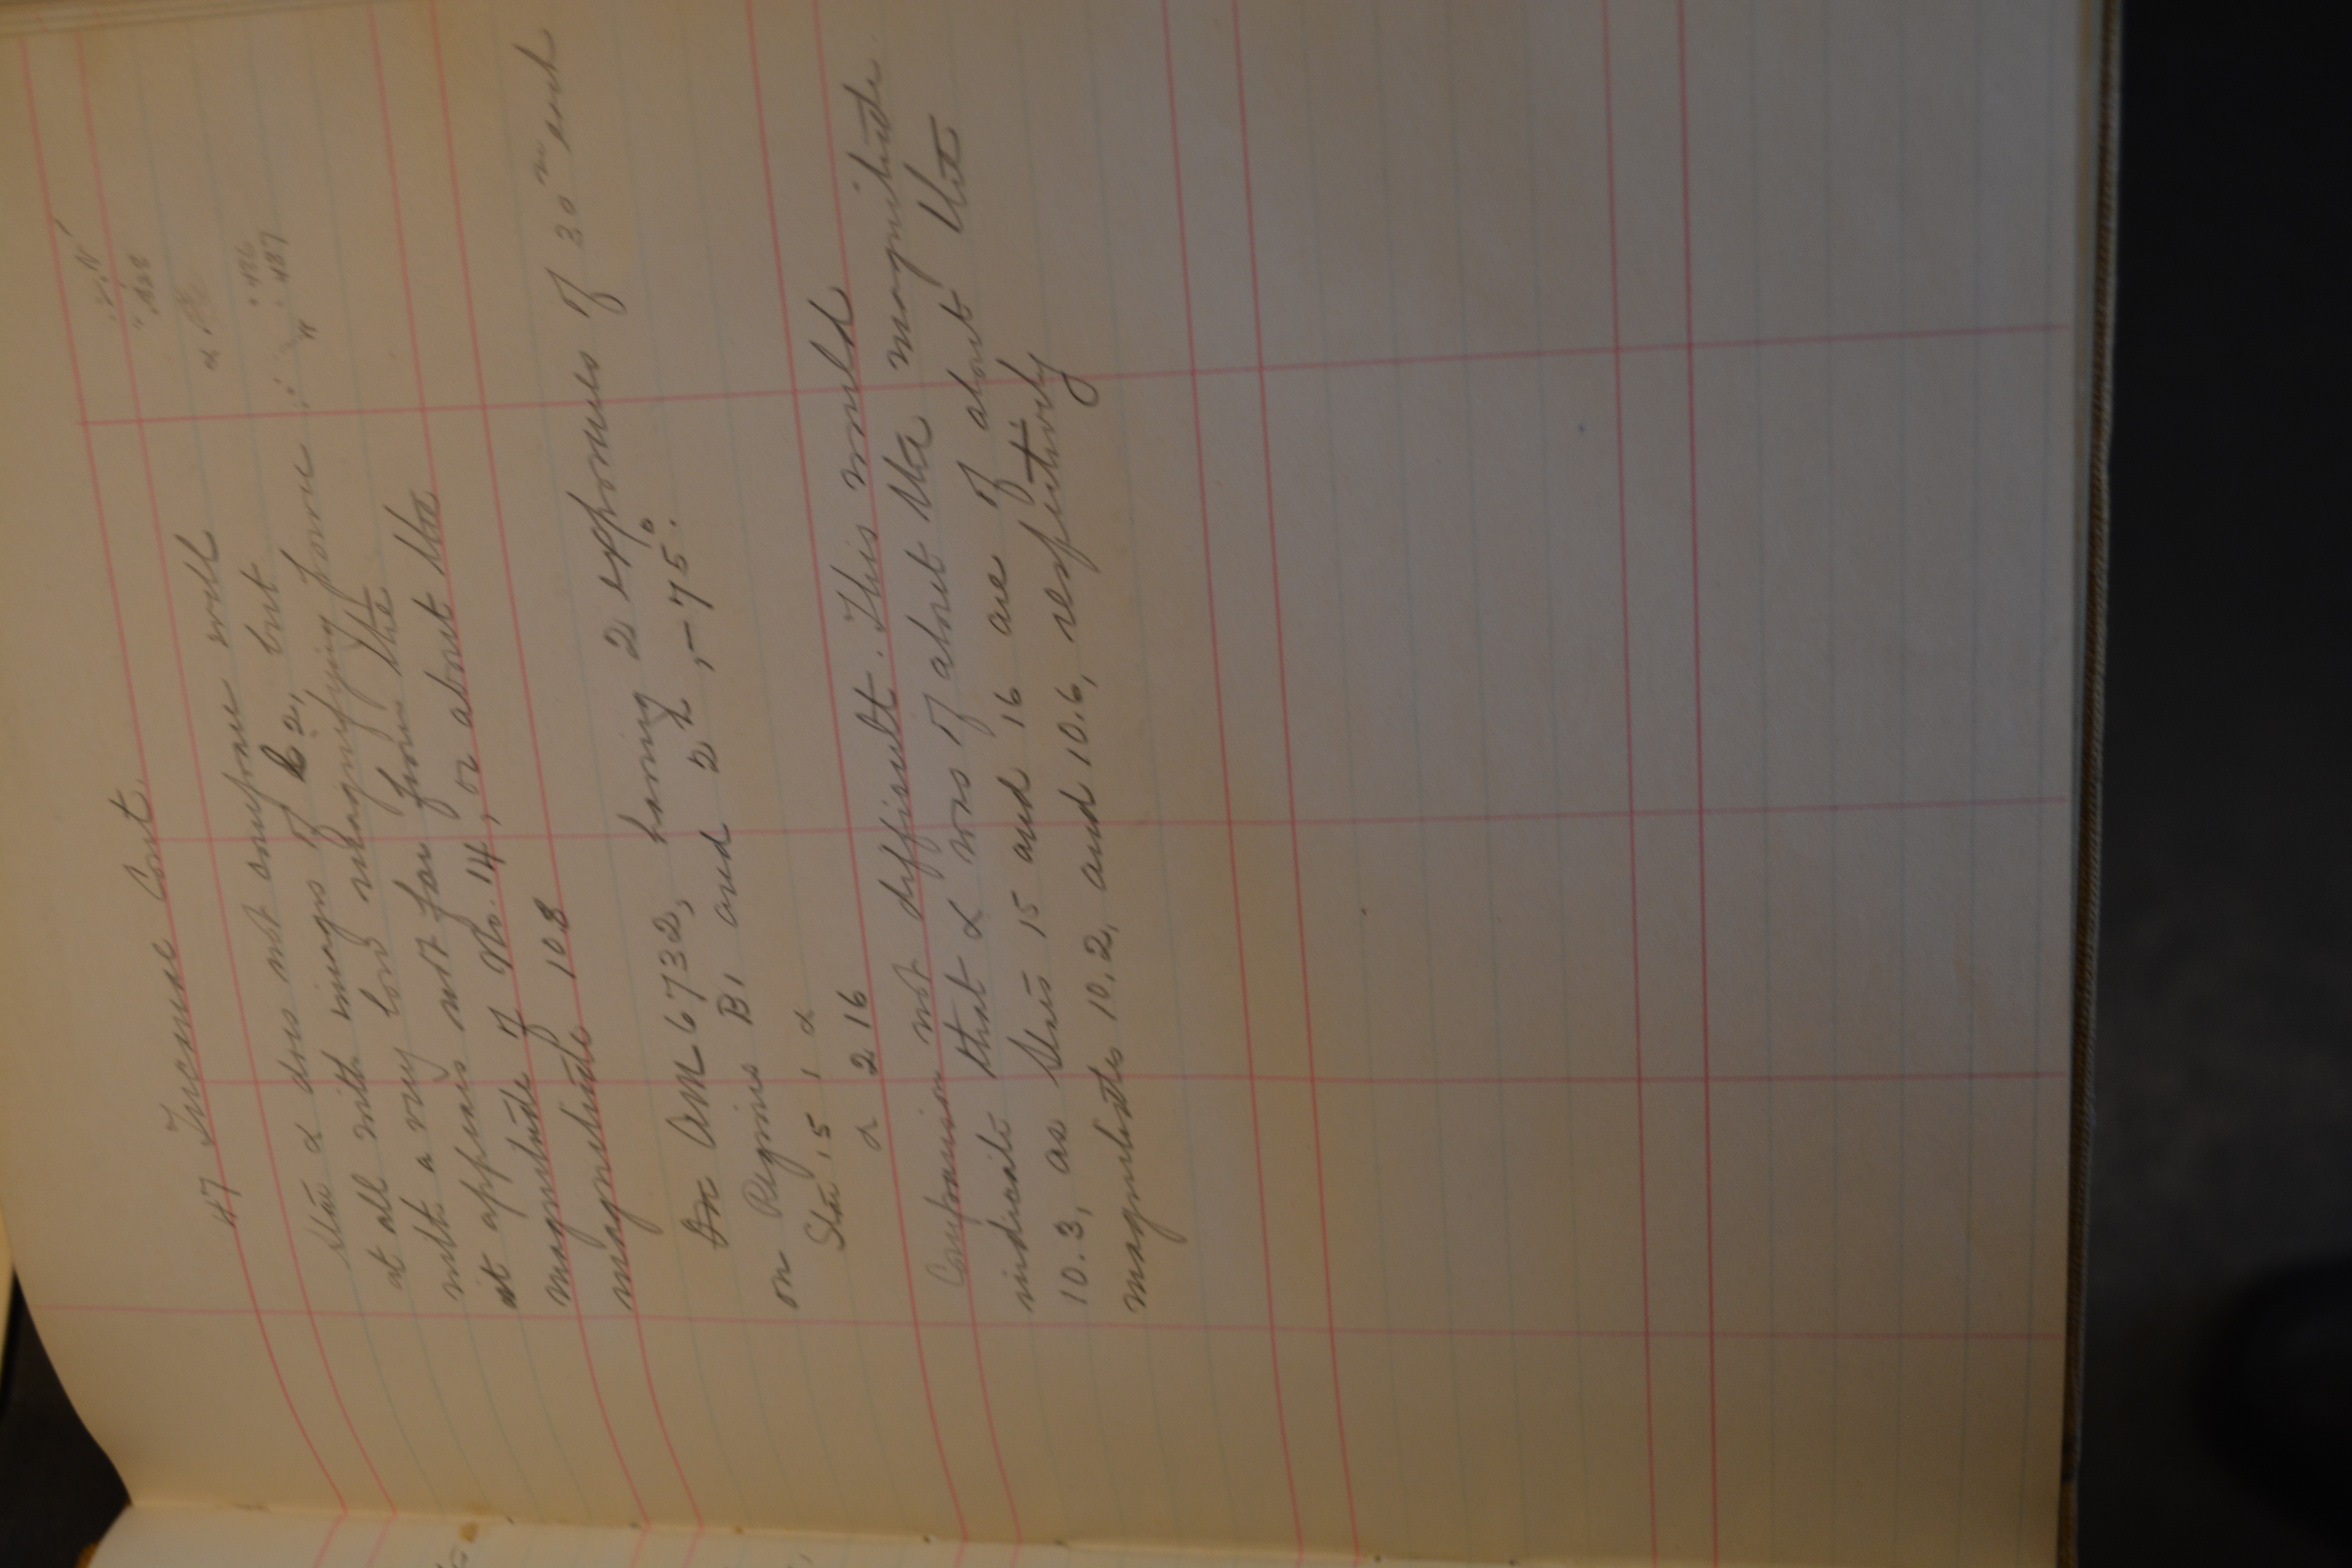 47 Tucanæ Cont.
Star α does not compare well
at all with images of k 2, but
with a very low magnifying power
it appears not far from the
magnitude of No. 14, or about the
magnitude 10.8
On AM 6732, having 2 exposures of 30ᵐ each
on Regions B1 and 2ʰ, -75°.
Star 15 1 α
α 2 16
Comparison not difficult. This would
indicate that α was of about the magnitude
10.3, as stars 15 and 16 are of about the
magnitudes 10.2, and 10.6, respectively